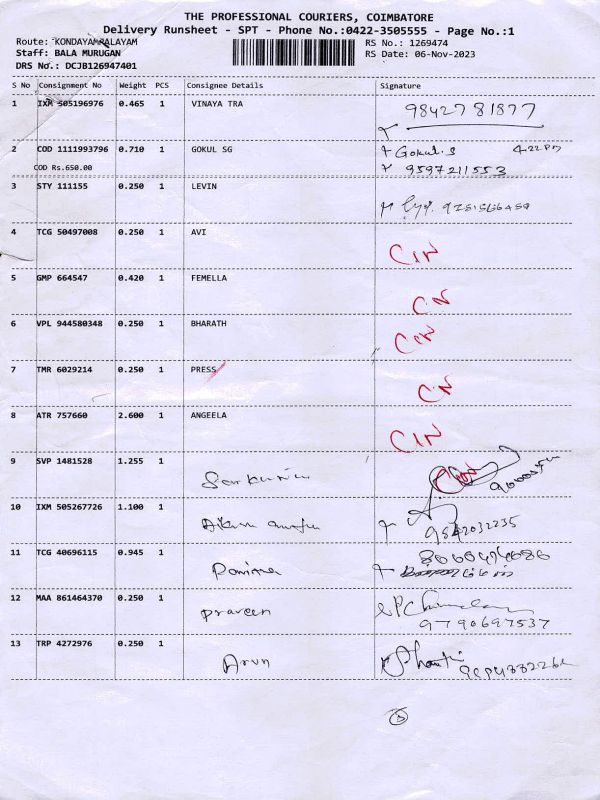 THE PROFESSIONAL COURIERS, COIMBATORE
Delivery Runsheet - SPT - Phone No.:0422-3505555 - Page No.:1
Route: KONDAYAMPALAYAM RS No.: 1269474
Staff: BALA MURUGAN RS Date: 06-Nov-2023
DRS No.: DCJB126947401
S No Consignment No Weight PCS Consignee Details Signature
1 IXM 505196976 0.465 1 VINAYA TRA 9842781877
2 COD 1111993796 0.710 1 GOKUL SG Gokul.s 4.22 PM
COD Rs.650.00 9597211553
3 STY 111155 0.250 1 LEVIN
4 TCG 50497008 0.250 1 AVI CIN
5 GMP 664547 0.420 1 FEMELLA CN
6 VPL 944580348 0.250 1 BHARATH CIN
7 TMR 6029214 0.250 1 PRESS CN
8 ATR 757660 2.600 1 ANGEELA CIN
9 SVP 1481528 1.255 1
10 IXM 505267726 1.100 1 9842032235
11 TCG 40696115 0.945 1
12 MAA 861464370 0.250 1 Praveen 9790697537
13 TRP 4272976 0.250 1 Arun